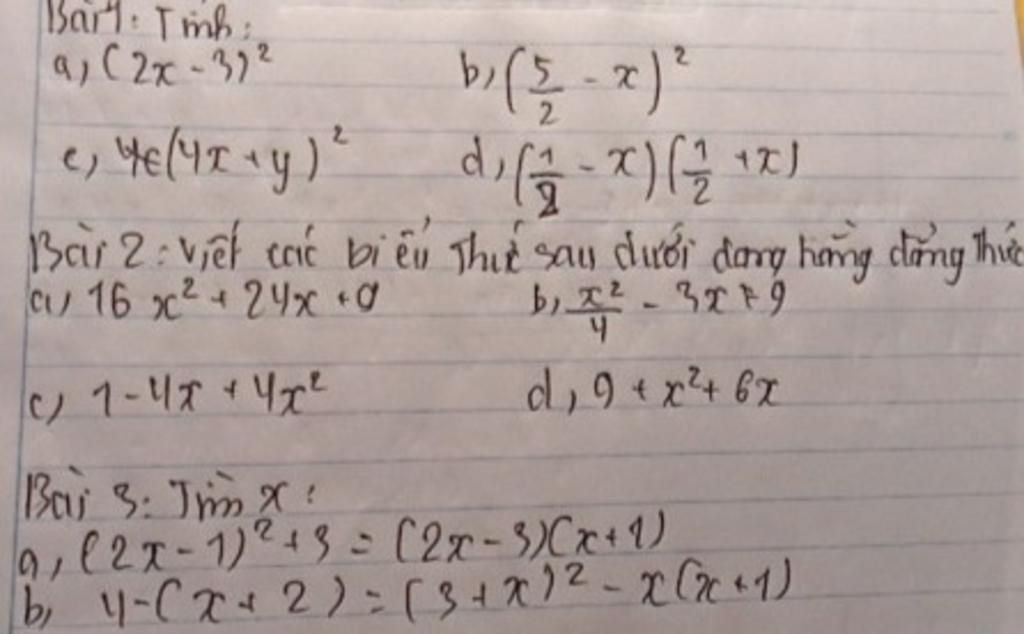 Bài 1: Tính:
a, (2x - 3)² b, (5/2 - x)²
c, (4x + y)² d, (1/2 - x)(1/2 + x)
Bài 2: Viết các biểu thức sau dưới dạng hằng đẳng thức
a, 16x² + 24x + 9 b, x²/4 - 3x + 9
c, 1 - 4x + 4x² d, 9 + x² + 6x
Bài 3: Tìm x:
a, (2x - 1)² + 3 = (2x - 3)(x + 1)
b, 4 - (x + 2) = (3 + x)² - x(x + 1)